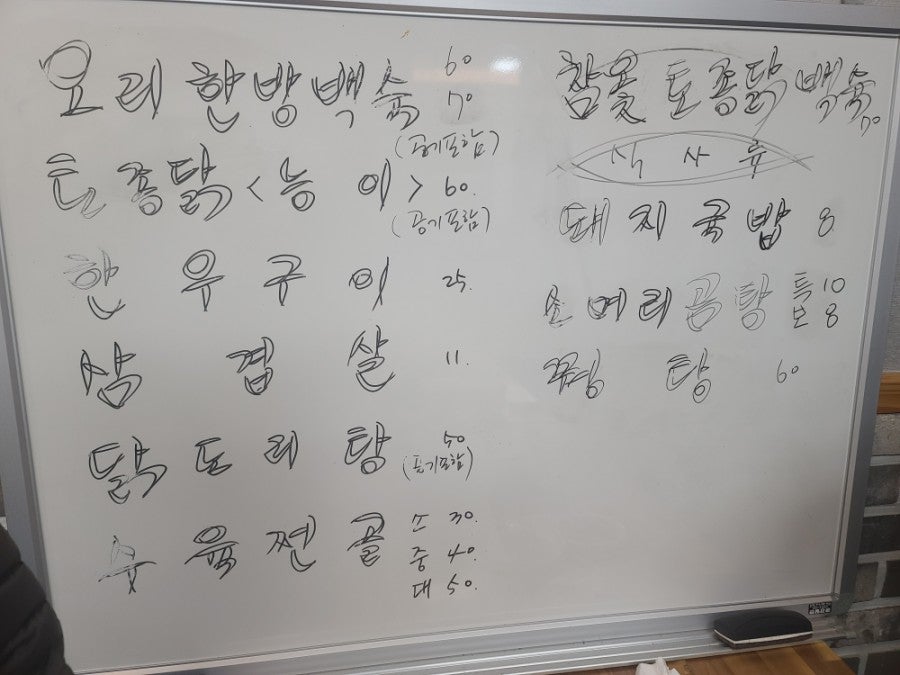 요리 한방백숙 60
70
(공기포함)
토종닭<능이> 60.
(공기포함)
한우구이 25.
삼겹살 11.
닭도리탕 50
(공기포함)
수육전골 소 30.
중 40.
대 50.
참옻 토종닭 백숙
70
식사류
돼지국밥 8
소머리곰탕 특 10
보 8
꿩탕 60